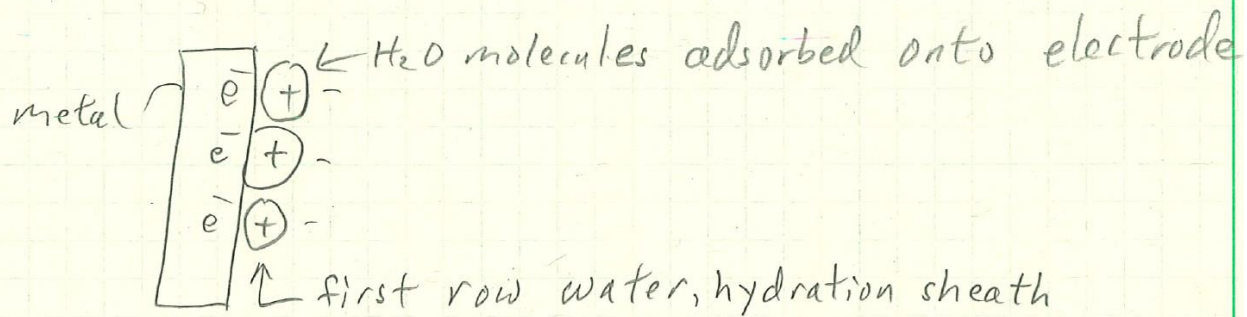 ← H₂O molecules adsorbed onto electrode
metal
e⁻ + -
e⁻ + -
e⁻ + -
↑ first row water, hydration sheath